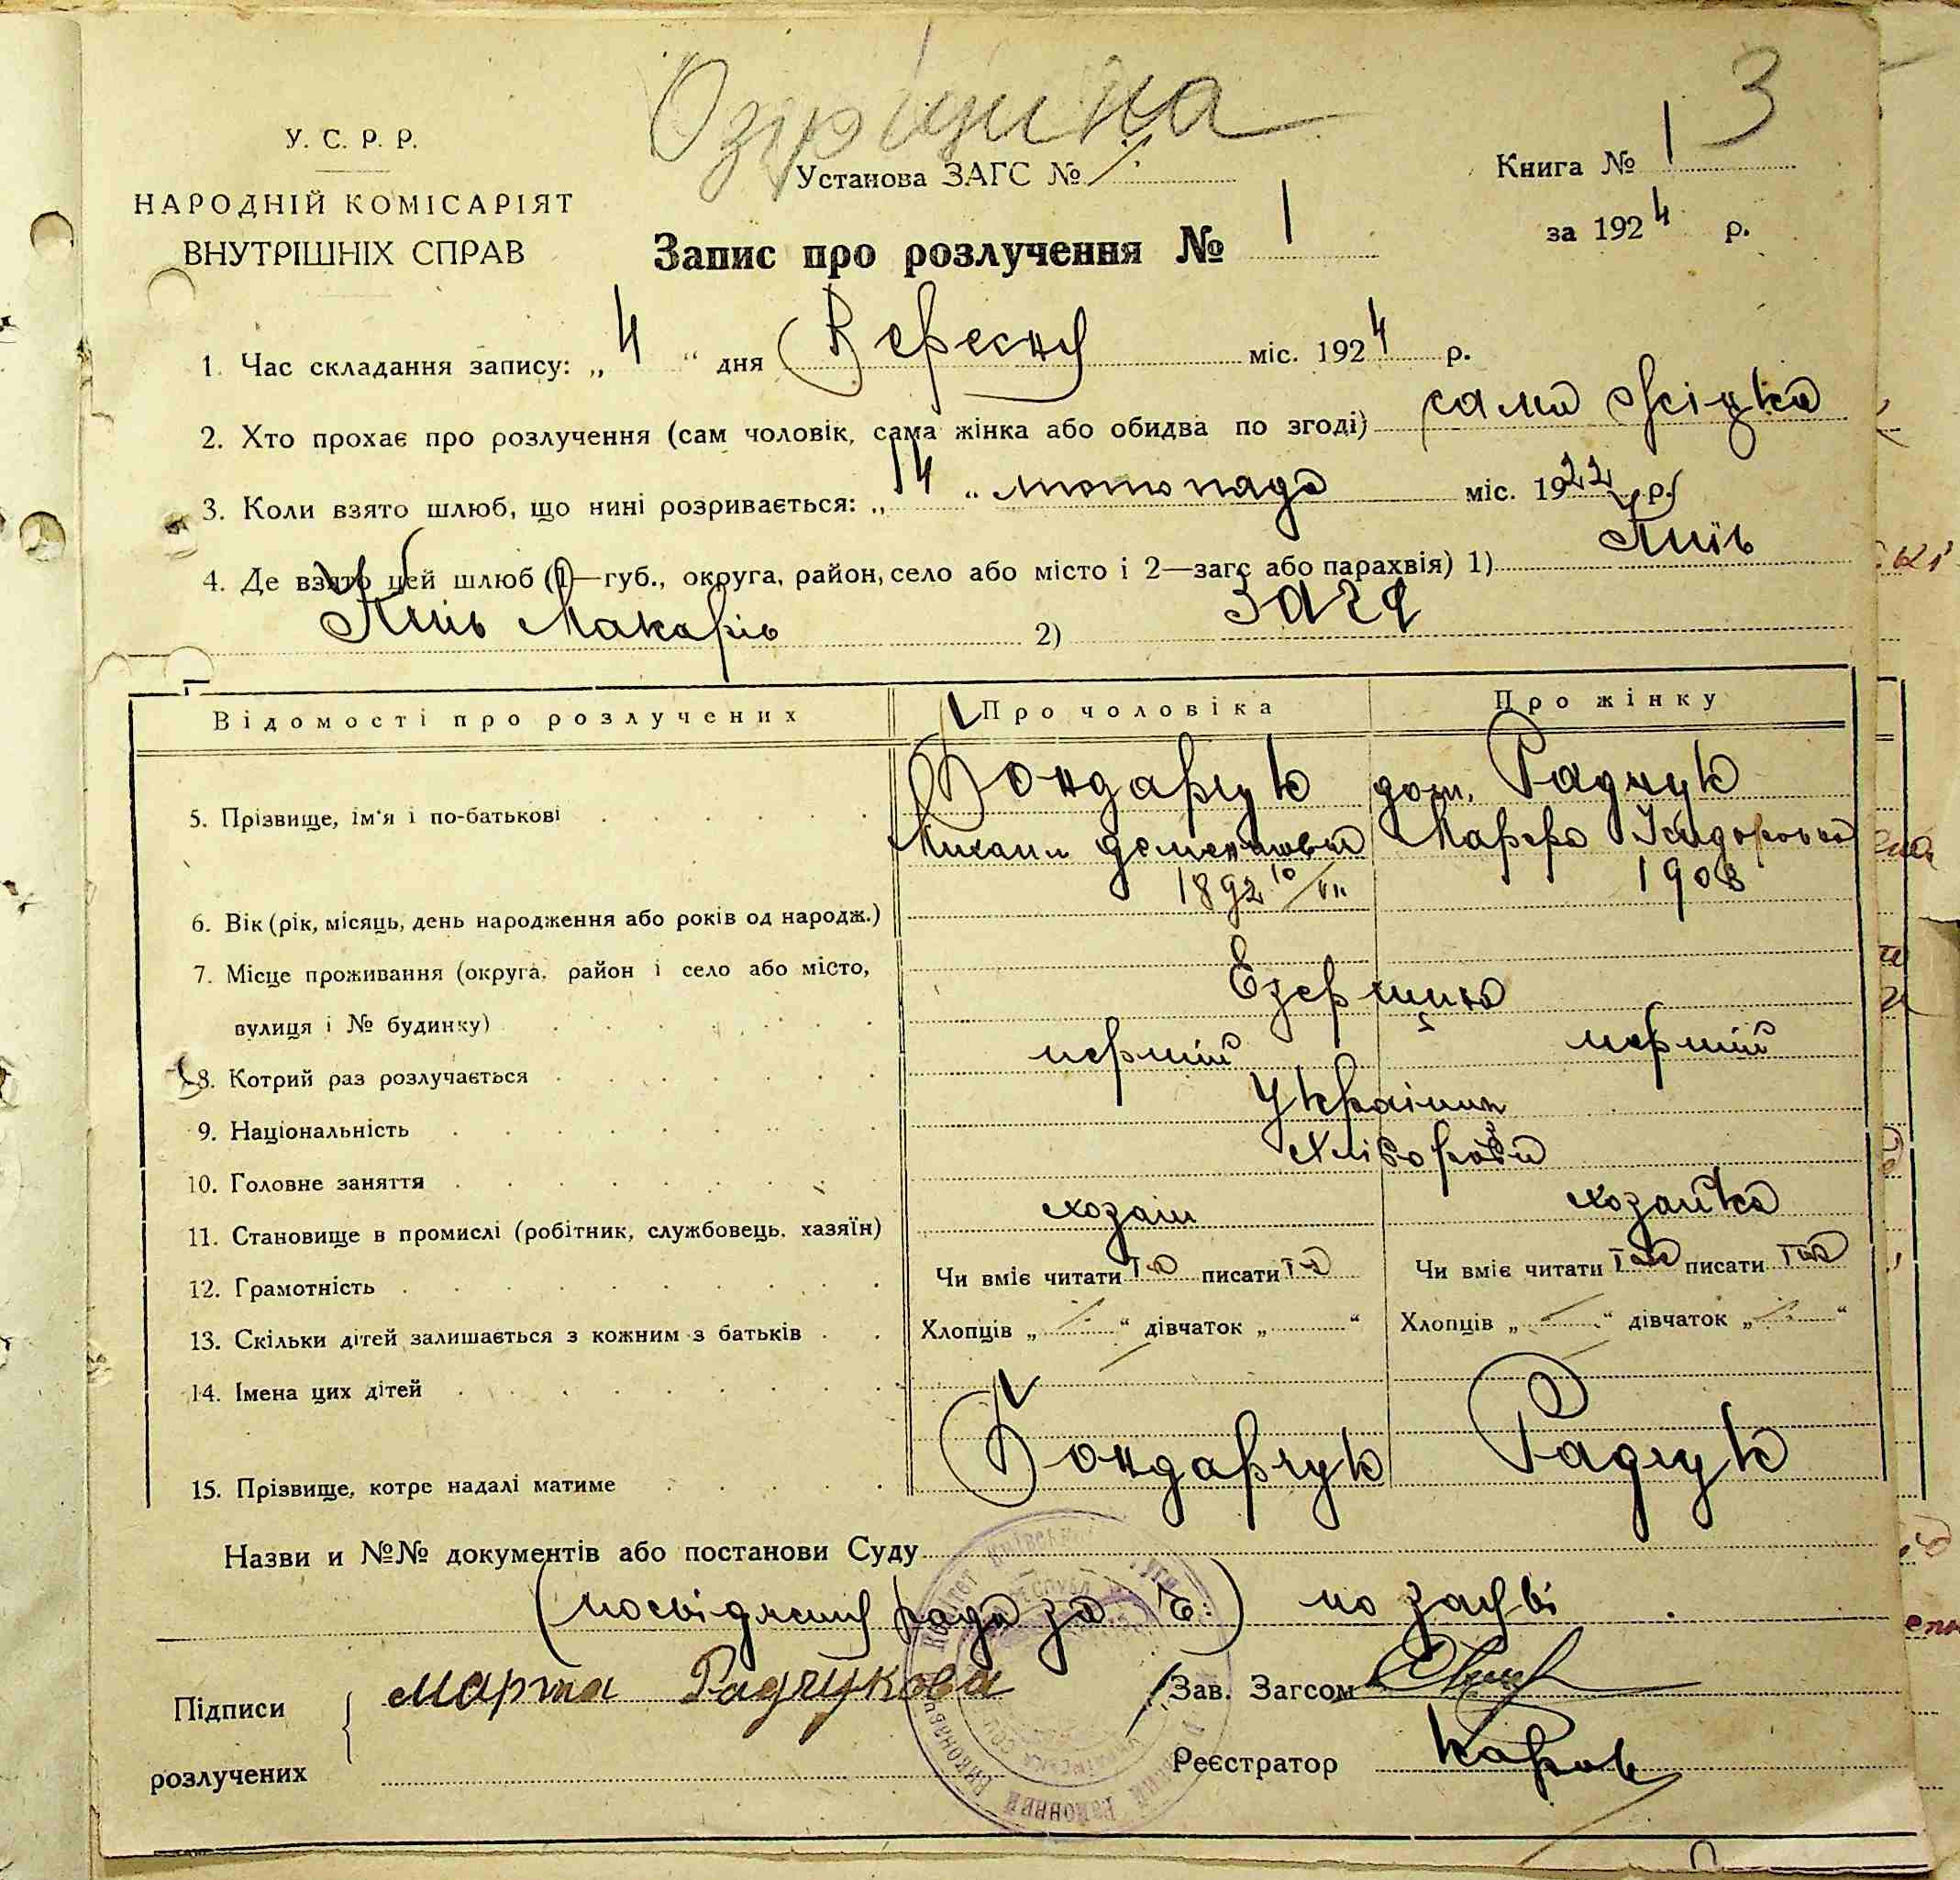 Озірщина
3
У. С. Р. Р.
НАРОДНІЙ КОМІСАРІЯТ
ВНУТРІШНІХ СПРАВ
Установа ЗАГС №
Книга № 1
за 1924 р.
Запис про розлучення № 1
1. Час складання запису: „ 4 “ дня Вересня міс. 1924 р.
2. Хто прохає про розлучення (сам чоловік, сама жінка або обидва по згоді) сама жінка
3. Коли взято шлюб, що нині розривається: „ 14 „ листопада міс. 1922 р.
4. Де взято цей шлюб (1—губ., округа, район, село або місто і 2—загс або парахвія) 1) Київ
Київ Макарів 2) Загс
Відомості про розлучених Про чоловіка Про жінку
5. Прізвище, ім'я і по-батькові Бондарчук дош. Радчук
Михаил Марфа Ісидоровна
6. Вік (рік, місяць, день народження або років од народж.) 1892 10/VII 1903
7. Місце проживання (округа, район і село або місто, Езерщина
вулиця і № будинку)
8. Котрий раз розлучається перший перший
9. Національність Українці
10. Головне заняття Хлібороби
11. Становище в промислі (робітник, службовець, хазяїн) хозаін хозайка
12. Грамотність Чи вміє читати так писати так Чи вміє читати так писати так
13. Скільки дітей залишається з кожним з батьків Хлопців „ “ дівчаток „ “ Хлопців „ “ дівчаток „ “
14. Імена цих дітей
15. Прізвище, котре надалі матиме Бондарчук Радчук
Назви и №№ документів або постанови Суду
(посвідчення рада за №:) по заяві
Підписи
розлучених
Марта Радчукова
Зав. Загсом
Реєстратор